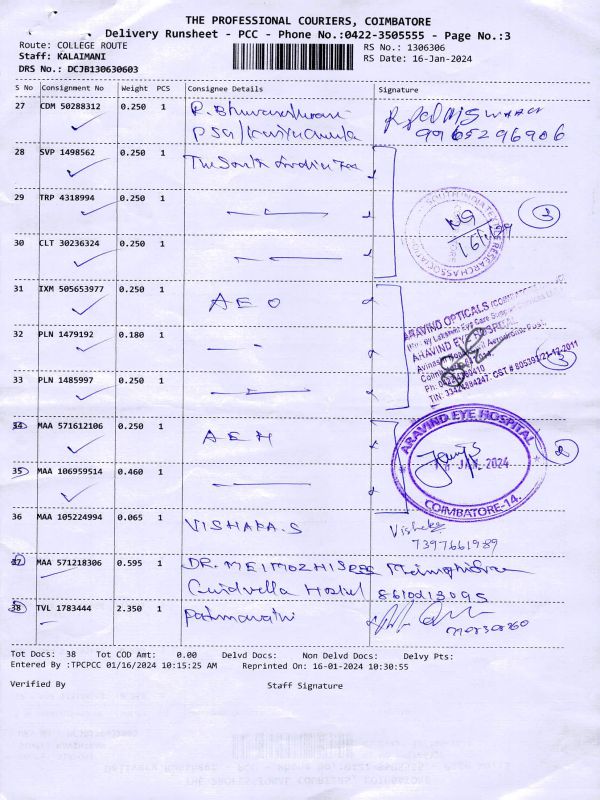 THE PROFESSIONAL COURIERS, COIMBATORE
Delivery Runsheet - PCC - Phone No.:0422-3505555 - Page No.:3
Route: COLLEGE ROUTE
RS No.: 1306306
Staff: KALAIMANI
RS Date: 16-Jan-2024
DRS No.: DCJB130630603
S No Consignment No Weight PCS Consignee Details Signature
27 CDM 50288312 0.250 1
9965296906
28 SVP 1498562 0.250 1 The South India Tex
29 TRP 4318994 0.250 1
SOUTH INDIA TEXTILE RESEARCH ASSOCIATION
3
30 CLT 30236324 0.250 1
31 IXM 505653977 0.250 1 AEO
ARAVIND OPTICALS
32 PLN 1479192 0.180 1
ARAVIND EYE HOSPITAL
33 PLN 1485997 0.250 1
3
34 MAA 571612106 0.250 1 AEH
ARAVIND EYE HOSPITAL
JAN 2024
COIMBATORE-14.
2
35 MAA 106959514 0.460 1
36 MAA 105224994 0.065 1 VISHAKA.S
7397661989
37 MAA 571218306 0.595 1 DR.
8610013095
38 TVL 1783444 2.350 1 Padmavathi
Tot Docs: 38 Tot COD Amt: 0.00 Delvd Docs: Non Delvd Docs: Delvy Pts:
Entered By :TPCPCC 01/16/2024 10:15:25 AM Reprinted On: 16-01-2024 10:30:55
Verified By Staff Signature